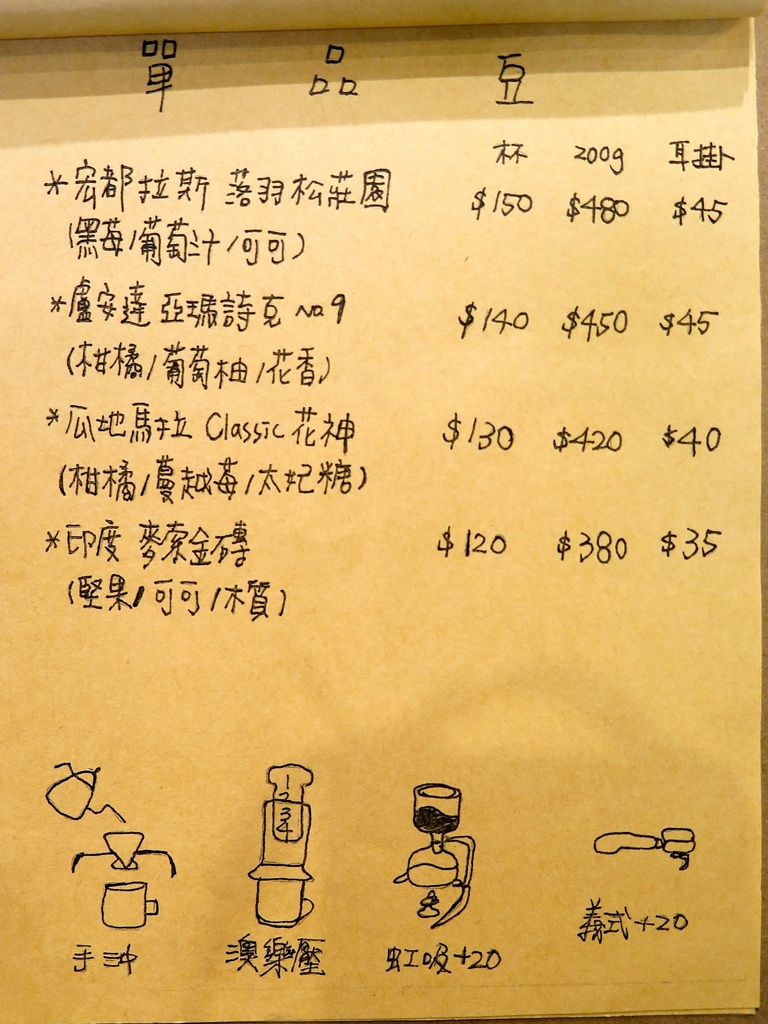 單 品 豆
杯 200g 耳掛
*宏都拉斯 落羽松莊園 $150 $480 $45
(黑莓/葡萄汁/可可)
*盧安達 亞瑪詩克 no.9 $140 $450 $45
(柑橘/葡萄柚/花香)
*瓜地馬拉 Classic 花神 $130 $420 $40
(柑橘/蔓越莓/太妃糖)
*印度 麥索金磚 $120 $380 $35
(堅果/可可/木質)
1
2
3
4
手沖 澳樂壓 虹吸+20 義式+20